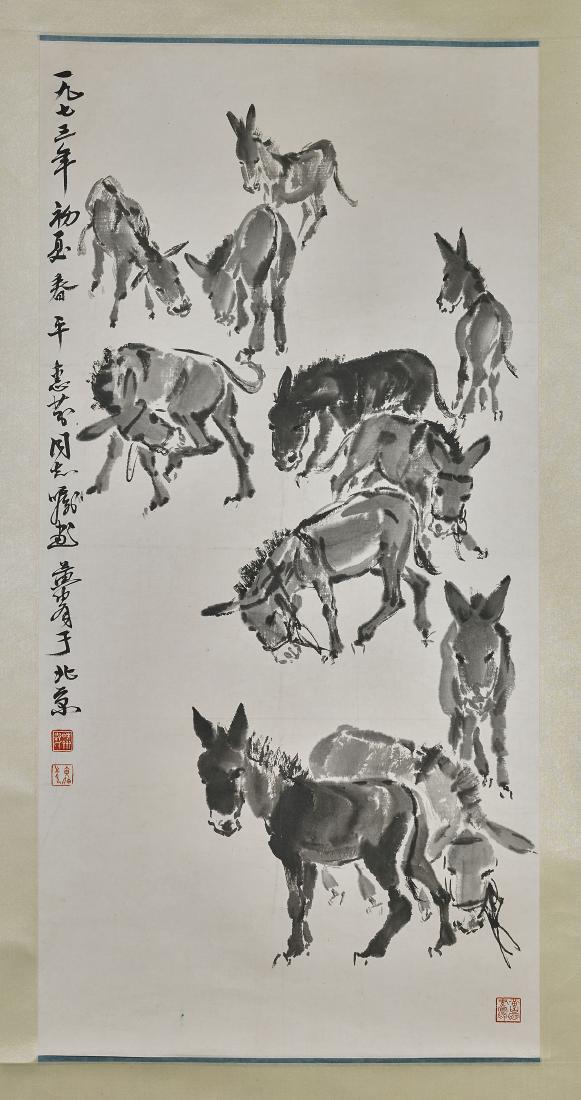 一九七三年初夏春平惠芬同志嘱画黄胄于北京